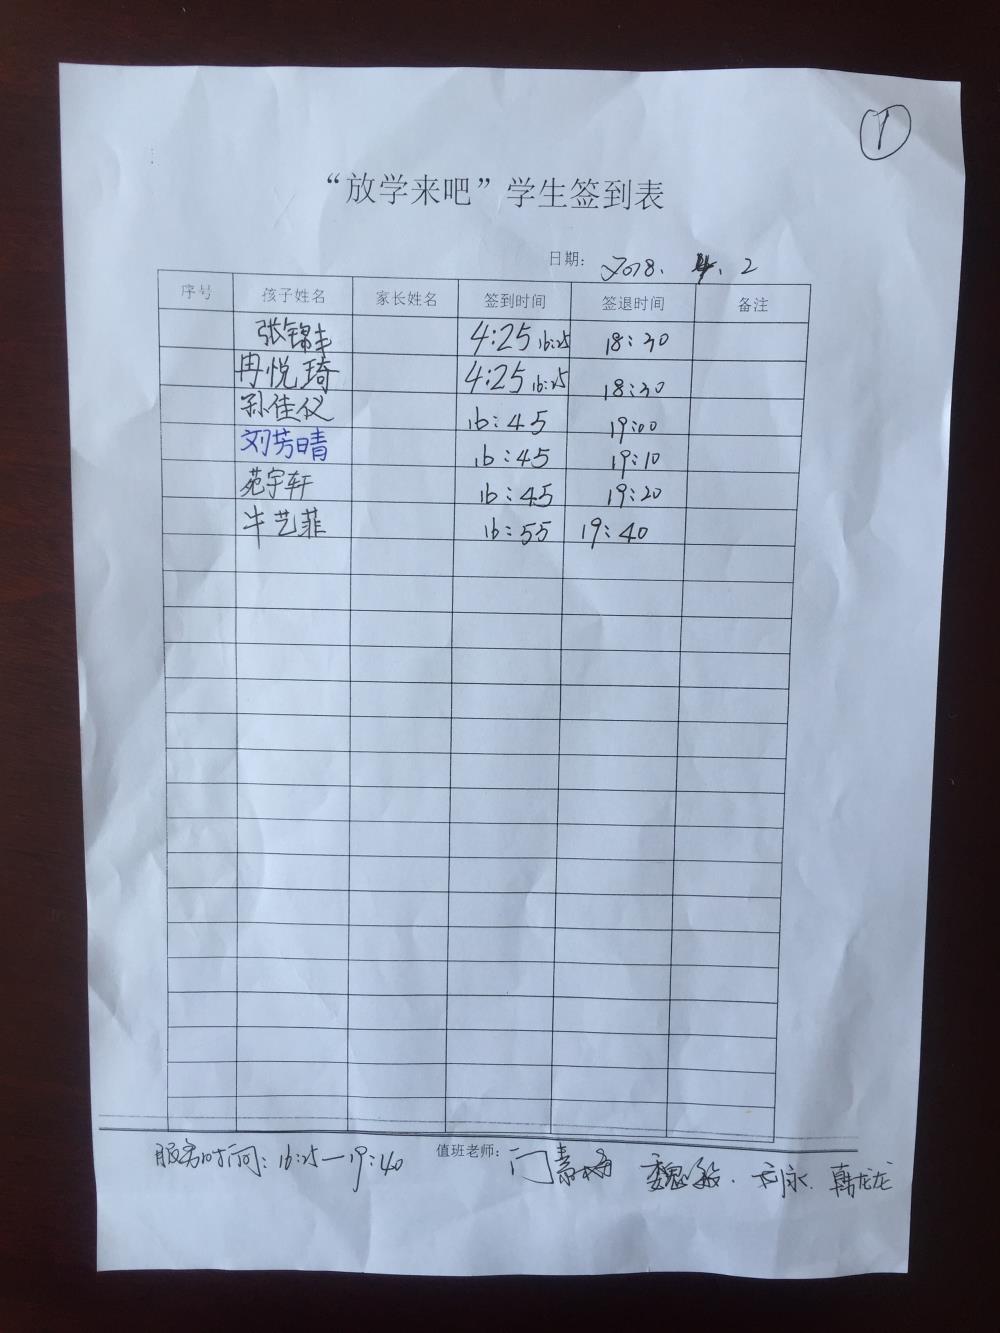 1
“放学来吧”学生签到表
日期: 2018. 4. 2
序号 孩子姓名 家长姓名 签到时间 签退时间 备注
张锦丰 4:25 16:25 18:30
冉悦琦 4:25 16:25 18:30
孙佳仪 16:45 19:00
刘芳晴 16:45 19:10
苑宇轩 16:45 19:20
牛艺菲 16:55 19:40
服务时间: 16:25—19:40 值班老师: 门素梅 魏敏. 刘永. 韩龙龙